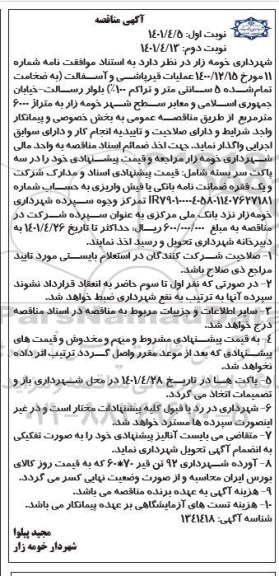 آگهی مناقصه
نوبت اول: ۱۴۰۱/۴/۵
نوبت دوم: ۱۴۰۱/۴/۱۳
شهرداری خومه زار در نظر دارد به استناد موافقت نامه شماره
۱۱مورخ ۱۴۰۰/۱۲/۱۵ عملیات قیرپاشی و آسفالت (به ضخامت
تمام‌شده ۵ سانتی متر و تراکم ۱۰۰٪) بلوار رسالت-خیابان
جمهوری اسلامی و معابر سطح شهر خومه زار به متراژ ۶۰۰۰
مترمربع از طریق مناقصه عمومی به بخش خصوصی و پیمانکار
واجد شرایط و دارای صلاحیت و تاییدیه انجام کار و دارای سوابق
اجرایی واگذار نماید. جهت اخذ ضمائم اسناد مناقصه به واحد مالی
شهرداری خومه زار مراجعه و قیمت پیشنهادی خود را در سه
پاکت سر بسته شامل: قیمت پیشنهادی اسناد و مدارک شرکت
و یک فقره ضمانت نامه بانکی یا فیش واریزی به حساب شماره
تمرکز وجوه سپرده شهرداری
خومه‌زار نزد بانک ملی مرکزی به عنوان سپرده شرکت در
مناقصه به مبلغ ۶۰۰/۰۰۰/۰۰۰ ریال، حداکثر تا تاریخ ۱۴۰۱/۴/۲۶ به
دبیرخانه شهرداری تحویل و رسید اخذ نمایند.
۱- صلاحیت شرکت کنندگان در استعلام بایستی مورد تایید
مراجع ذی صلاح باشد.
۲- در صورتی که نفر اول تا سوم حاضر به انعقاد قرارداد نشوند
سپرده آنها به ترتیب به نفع شهرداری ضبط خواهد شد.
۳- سایر اطلاعات و جزییات مربوط به مناقصه در اسناد مناقصه
درج خواهد شد.
۴- به قیمت پیشنهادی مشروط و مبهم و مخدوش و قیمت های
پیشنهادی که بعد از موعد مقرر واصل گردد ترتیب اثر داده
نخواهد شد.
۵- پاکت ها در تاریخ ۱۴۰۱/۴/۲۸ در محل شهرداری باز و
تصمیمات اتخاذ می گردد.
۶- شهرداری در رد یا قبول کلیه پیشنهادات مختار است و در غیر
اینصورت سپرده ها مسترد خواهد شد.
۷- متقاضی می بایست آنالیز پیشنهادی خود را به صورت تفکیکی
به انضمام آگهی تحویل شهرداری نماید.
۸- آورده شهرداری ۹۲ تن قیر ۷۰*۶۰ که به قیمت روز کالای
بورس ایران محاسبه و از صورت وضعیت نهایی کسر می گردد.
۹- هزینه آگهی به عهده برنده مناقصه می باشد.
۱۰- هزینه تست های آزمایشگاهی بر عهده پیمانکار می باشد.
شناسه آگهی: ۱۳۴۱۴۱۸
مجید پیلوا
شهردار خومه زار